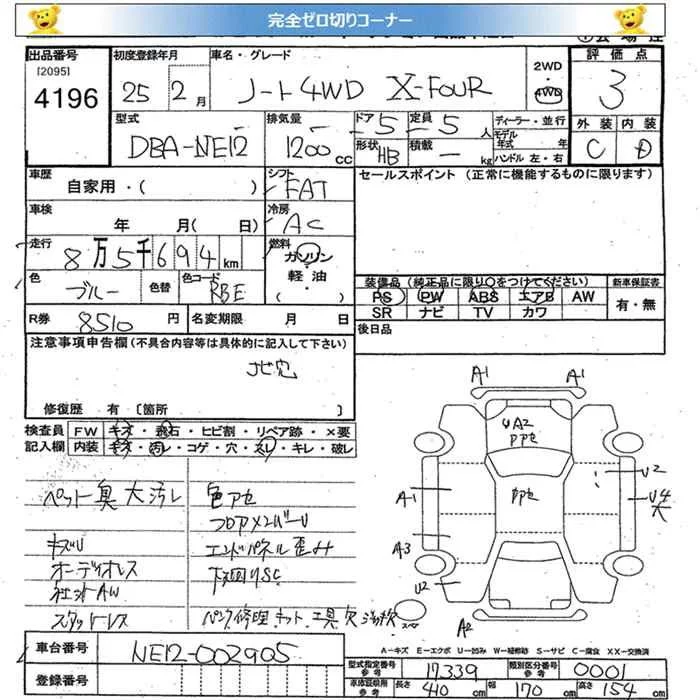 完全ゼロ切りコーナー
出品番号 [2095] 4196
初度登録年月 25 2月
車名・グレード ノート4WD X-FOUR
2WD・4WD
評価点 3
外装 C 内装 D
型式 DBA-NE12
排気量 1200 CC
ドア 5 定員 5 人
形状 HB 積載 — kg
ディーラー・並行
モデル年式 年
ハンドル 左・右
車歴 自家用・( )
シフト FAT
セールスポイント (正常に機能するものに限ります)
車検 年 月( 日)
冷房 AC
走行 8万5千694km
燃料 ガソリン 軽油 ・( )
色 ブルー 色替
色コード RBE
装備品 (純正品に限り○をつけてください) 新車保証書
PS PW ABS エアB AW 有・無
SR ナビ TV カワ
R券 8510 円 名変期限 月 日
後日品
注意事項申告欄(不具合内容等は具体的に記入して下さい)
ナビ穴
修復歴 有 〔箇所 〕
検査員 FW キズ・飛石・ヒビ割・リペア跡・×要
記入欄 内装 キズ・汚レ・コゲ・穴・スレ・キレ・破レ
A1 A1
UA2
ペット臭 大汚レ 色アセ
フロアメンバーU
キズU エンドパネル歪み
オーディオレス 下廻りSC
社外AW
スタッドレス パンク修理キット、工具欠
A1
U2
U4
A3
U2
A2
車台番号 NE12-002905
登録番号
A−キズ E−エクボ U−凹み W−補修跡 S−サビ C−腐食 XX−交換済
型式指定番号 参考 17339 類別区分番号 参考 0001
車庫証明用 参考 長さ 410 cm 幅 170 cm 高さ 154 cm